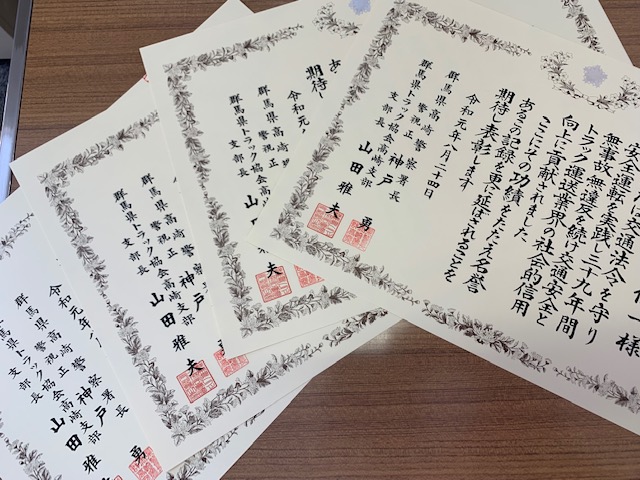 一様
は交通法令を守り
安全運転を実践し三十九年間
無事故無違反を続け交通安全と
トラック運送業界の社会的信用
向上に貢献されました
ここにその功績をたたえ名誉
あるこの記録を更に延ばされることを
期待し表彰します
令和元年八月二十四日
群馬県高崎警察署長
警視正 神戸 勇
群馬県トラック協会高崎支部
支部長 山田雅夫
あ
期待し
令和元
群馬県高崎
警視正
群馬県トラック協会高崎
支部長 山 夫
群馬県高崎警察署
警視正 神戸
群馬県トラック協会高崎
支部長 山田雅夫
令和元年
群馬県高崎警察署長
警視正 神戸 勇
群馬県トラック協会高崎支部
支部長 山田雅